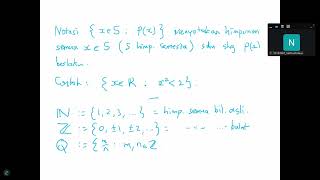 Notasi { x ∈ S : P(x) } menyatakan himpunan
semua x ∈ S (S himp. semesta) sdm shg P(x)
berlaku.
Contoh : { x ∈ R : x² < 2 }.
ℕ := {1, 2, 3, ...} = himp. semua bil. asli.
ℤ := {0, ±1, ±2, ...} = bulat
ℚ := { m/n : m, n ∈ ℤ
N